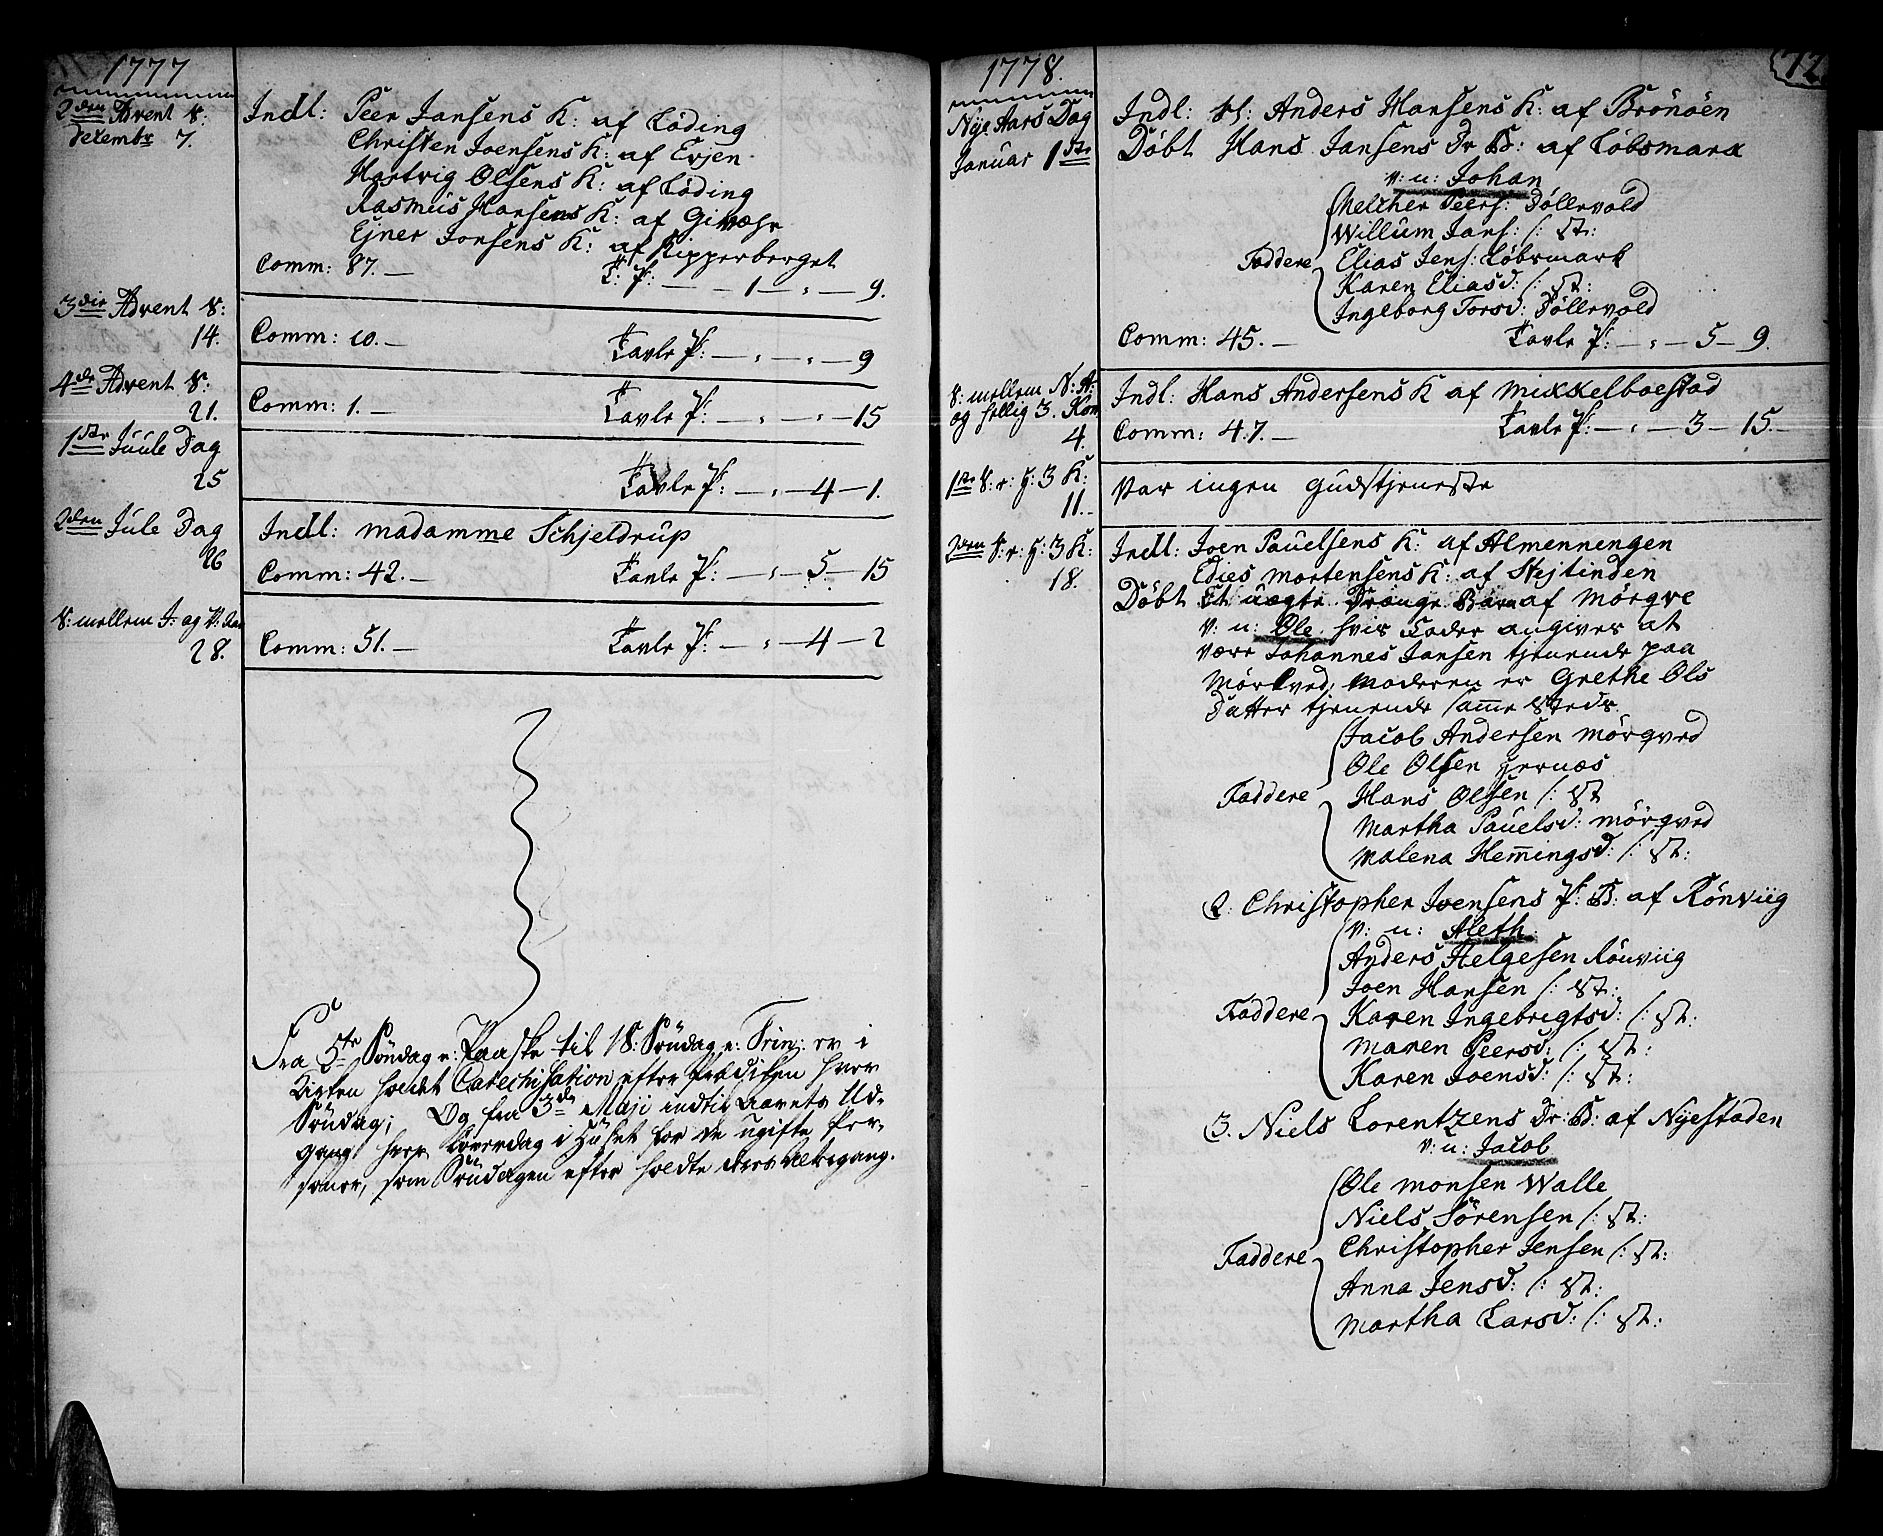 1777
2den Advent S:
Decembr 7.
Indl: Peer Jansens K: af Løding
Christen Joensens K: af Evjen
Hartvig Olsens K: af Løding
Rasmus Hansens K: af Givær
Ejner Jonsens K: af Kipperberget
Comm: 87. — T. P: — — 1 — „ — 9.
3die Advent S:
14.
Comm: 10. — Tavle P: — „ — „ — 9
4de Advent S:
21.
Comm: 1. — Tavle P: — „ — „ — 15
1ste Juule Dag
25
Tavle P: — „ — 4 — 1.
2den Jule Dag
26
Indl: Madamme Schjeldrup
Comm: 42. — Tavle P: — „ — 5 — 15
S: mellem J: og N: Aar
28.
Comm: 51. — Tavle P: — „ — 4 — 2
Fra 5te Søndag e: Paaske til 18. Søndag e: Trin: er i
Kirken holdt Catechisation efter Prædiken hver
Søndag; Og fra 3de Maji indtil Aarets Ud-
gang hver Løverdag i Huset for de ugifte Per-
soner, som Søndagen efter holdte deres Altergang.
1778.
72
Nye Aars Dag
Januar 1ste
Indl: Sl: Anders Hansens K: af Brönöen
Døbt Hans Jansens Dr B: af Løbsmark
v: u: Johan
Melcher Peers: Døllevold
Willum Jans: /: St:
Faddere Elias Jens: Løbsmark
Karen Eliasd: /: St:
Ingeborg Torsd: Døllevold
Comm: 45. — Tavle P: — „ — 5 — 9.
S: mellem N: A:
og hellig 3. Kon
4.
Indl: Hans Andersens K af Mikkelboestad
Comm: 47. — Tavle P: — „ — 3 — 15. —
1ste S: e: H: 3 K:
11. —
Var ingen Gudstjeneste
2den S: e: H: 3 K:
18.
Indl: Joen Pauelsens K: af Almenningen
Edies Mortensens K: af Stejtinden
Døbt Et uægte Drænge Barn af Mørqve
v: u: Ole. hvis Fader angives at
være Johannes Jansen tjenende paa
Mørkved, Moderen er Grethe Ols
Datter tjenende samme Steds.
Jacob Andersen Mørqved
Ole Olsen Hernæs
Faddere Hans Olsen /: St
Martha Pauelsd: Mørqved
Malena Hemingsd: /: St:
2. Christopher Joensens P: B: af Rønviig
v: u: Aleth
Anders Helgesen Rønviig
Joen Hansen /: St:
Faddere Karen Ingebrigtsd: /: St:
Maren Peersd: /: St:
Karen Joensd: /: St:
3. Niels Lorentzens Dr: B: af Nyestaden
v: u: Jacob
Ole Monsen Walle
Niels Sørensen /: St:
Faddere Christopher Jensen /: St:
Anna Jensd: /: St:
Martha Larsd: /: St: